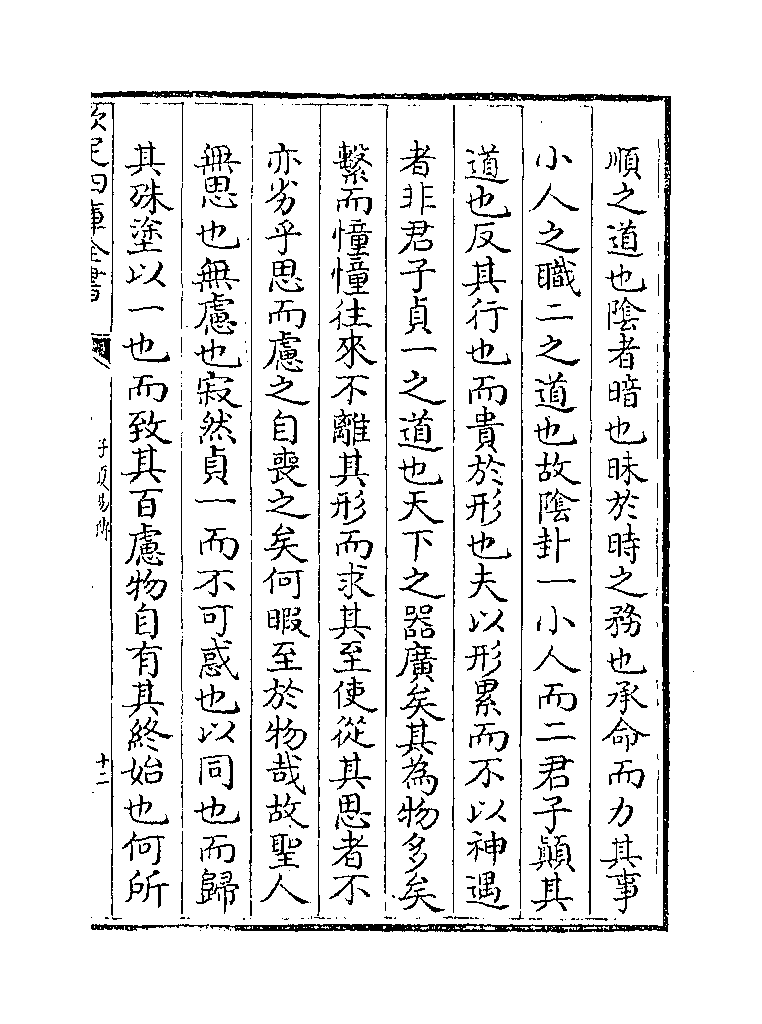 順之道也陰者暗也昧於時之務也承命而力其事
小人之職二之道也故陰卦一小人而二君子顛其
道也反其行也而貴於形也夫以形累而不以神遇
者非君子貞一之道也天下之器廣矣其為物多矣
繫而憧憧往來不離其形而求其至使從其思者不
亦劣乎思而慮之自喪之矣何暇至於物哉故聖人
無思也無慮也寂然貞一而不可惑也以同也而歸
其殊塗以一也而致其百慮物自有其終始也何所
欽定四庫全書
子夏易傳
十二